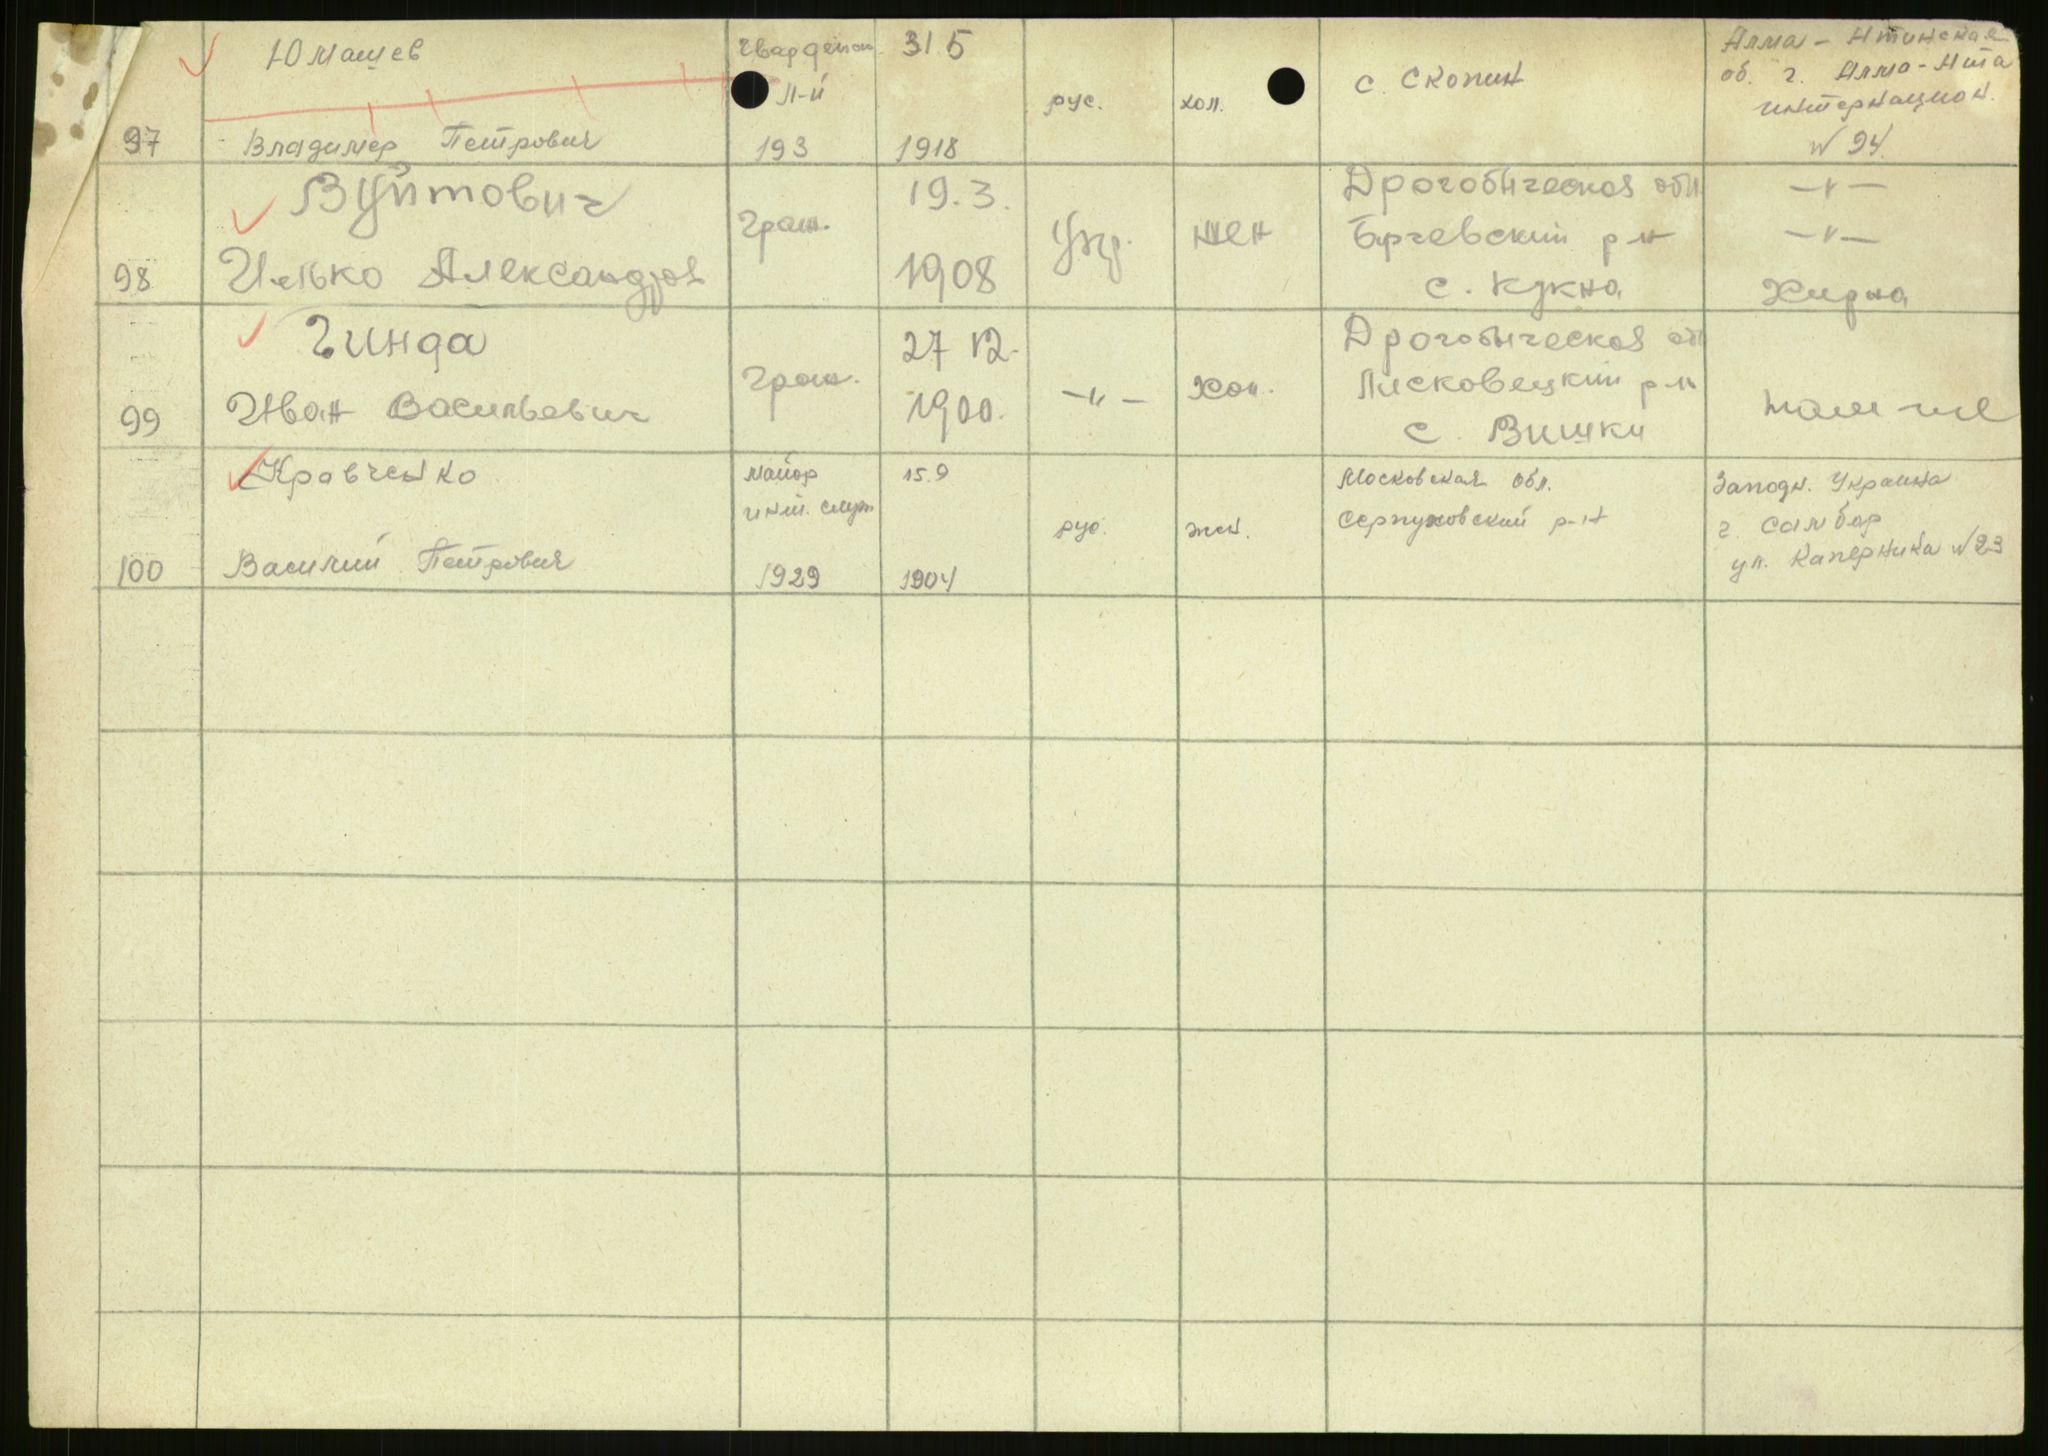 97
Юмашев
Владимер Петрович
гвардейск.
л-й
193
31 5
1918
рус.
хол.
с. Скопин
Алма-Атинская
об. г. Алма-Ата
интернацион.
N 94
98
Вуйтович
Илько Александров
граж.
19.3.
1908
Укр.
жен
Дрогобическая обл
р-н
с. Кукна
—"—
—"—
Хирна
99
Гинда
Иван Васильевич
граж.
27 12.
1900.
—"—
Хол.
Дрогобическая обл
Лисковецкий р-н
с. Вишки
там-же
100
Кравченко
Василий Петрович
майор
инт. служ
1929
15.9
1904
рус.
жен.
Московская обл.
Серпуховский р-н
Западн. Украина
г. Самбор
ул. Каперника N 23